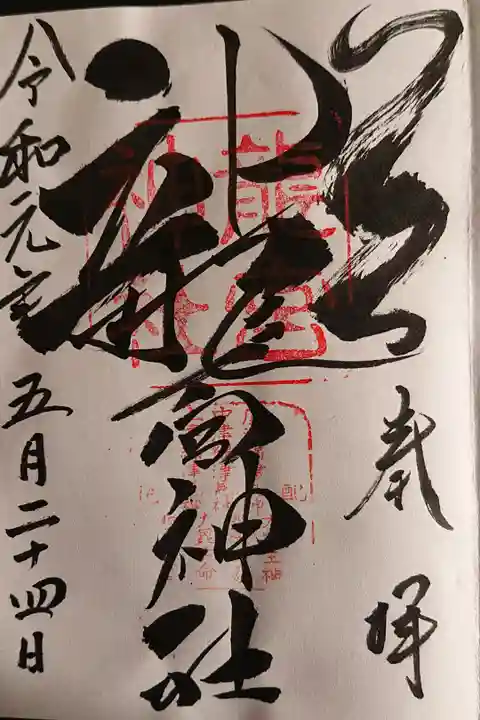 奉拝
龍宮神社
令和元年五月二十四日
龍宮
神社